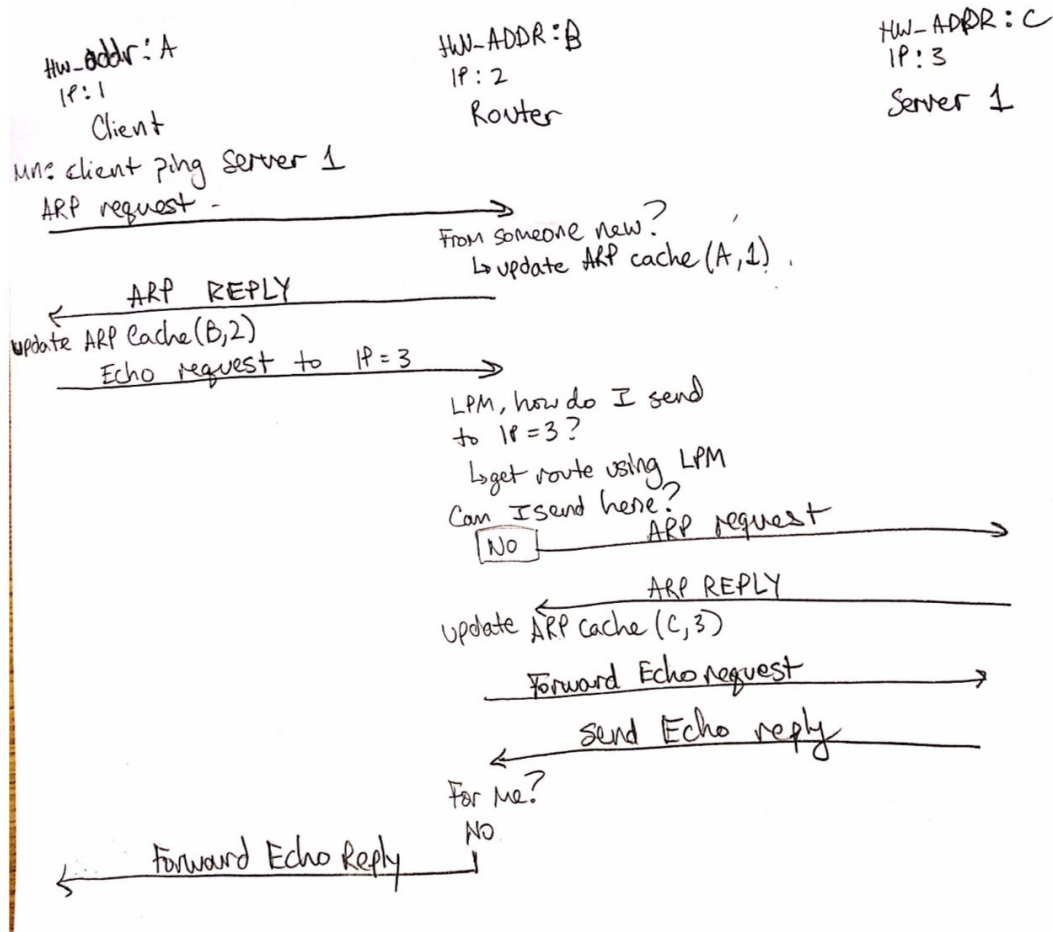 HW_addr: A
IP: 1
Client
HW-ADDR: B
IP: 2
Router
HW-ADDR: C
IP: 3
Server 1
client ping Server 1
ARP request -
From someone new?
↳ update ARP cache (A,1).
ARP REPLY
update ARP Cache (B,2)
Echo request to IP = 3
LPM, how do I send
to IP = 3?
↳ get route using LPM
Can I send here?
NO
ARP request
ARP REPLY
update ARP cache (C,3)
Forward Echo request
send Echo reply
For me?
NO
Forward Echo Reply